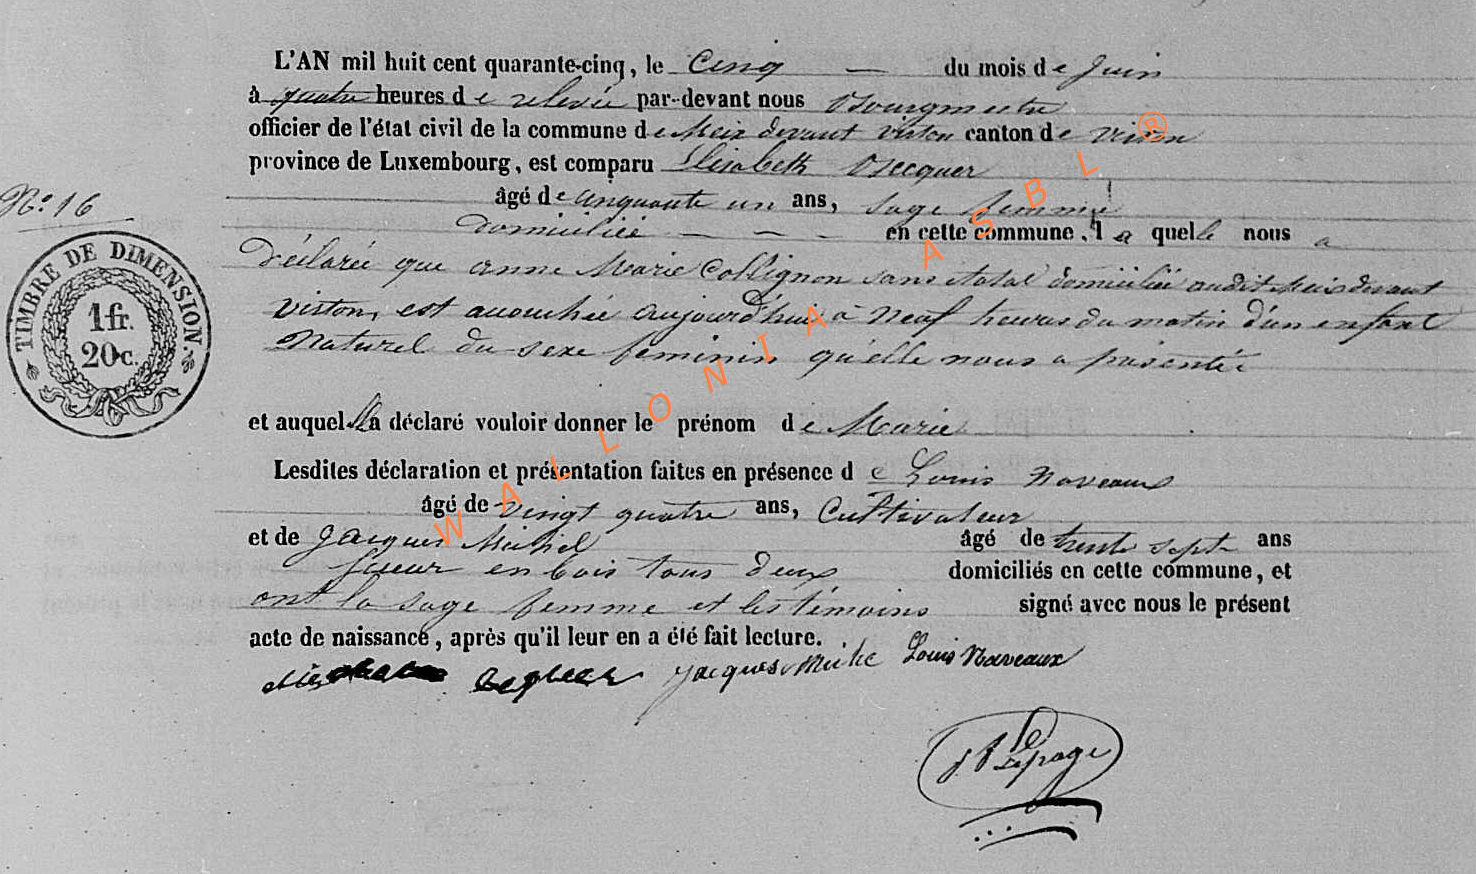 L'AN mil huit cent quarante-cinq, le Cinq — du mois de Juin
à quatre heures de relevée par-devant nous Bourgmestre
officier de l'état civil de la commune de Meix devant virton canton de virton
province de Luxembourg, est comparu Elisabeth
N.º 16
âgé de cinquante un ans, sage femme
domiciliée — — — en cette commune, laquelle nous a
Déclarée que anne Marie Collignon sans état domiciliée audit Meix devant
virton, est accouchée aujourd'hui à Neuf heures du matin d'un enfant
Naturel du sexe feminin qu'elle nous a présentée
et auquel elle a déclaré vouloir donner le prénom de Marie
Lesdites déclaration et présentation faites en présence de Louis Naveaux
âgé de vingt quatre ans, Cultivateur
et de Jacques Michel âgé de trente sept ans
scieur en bois tous deux domiciliés en cette commune, et
ont la sage femme et les témoins signé avec nous le présent
acte de naissance, après qu'il leur en a été fait lecture.
Jacques Louis Naveaux
Lepage
TIMBRE DE DIMENSION.
1 fr.
20 c.
WALLONIA ASBL ®